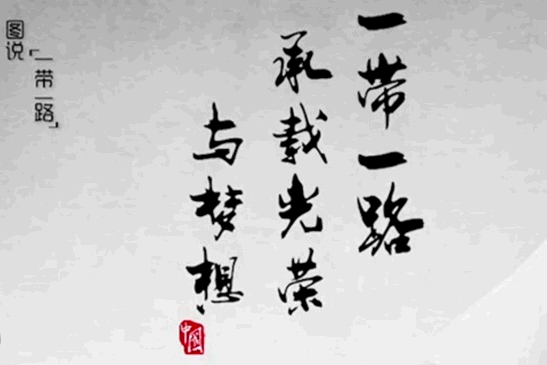 一带一路
承载光荣
与梦想
中国
图说
「一带一路」